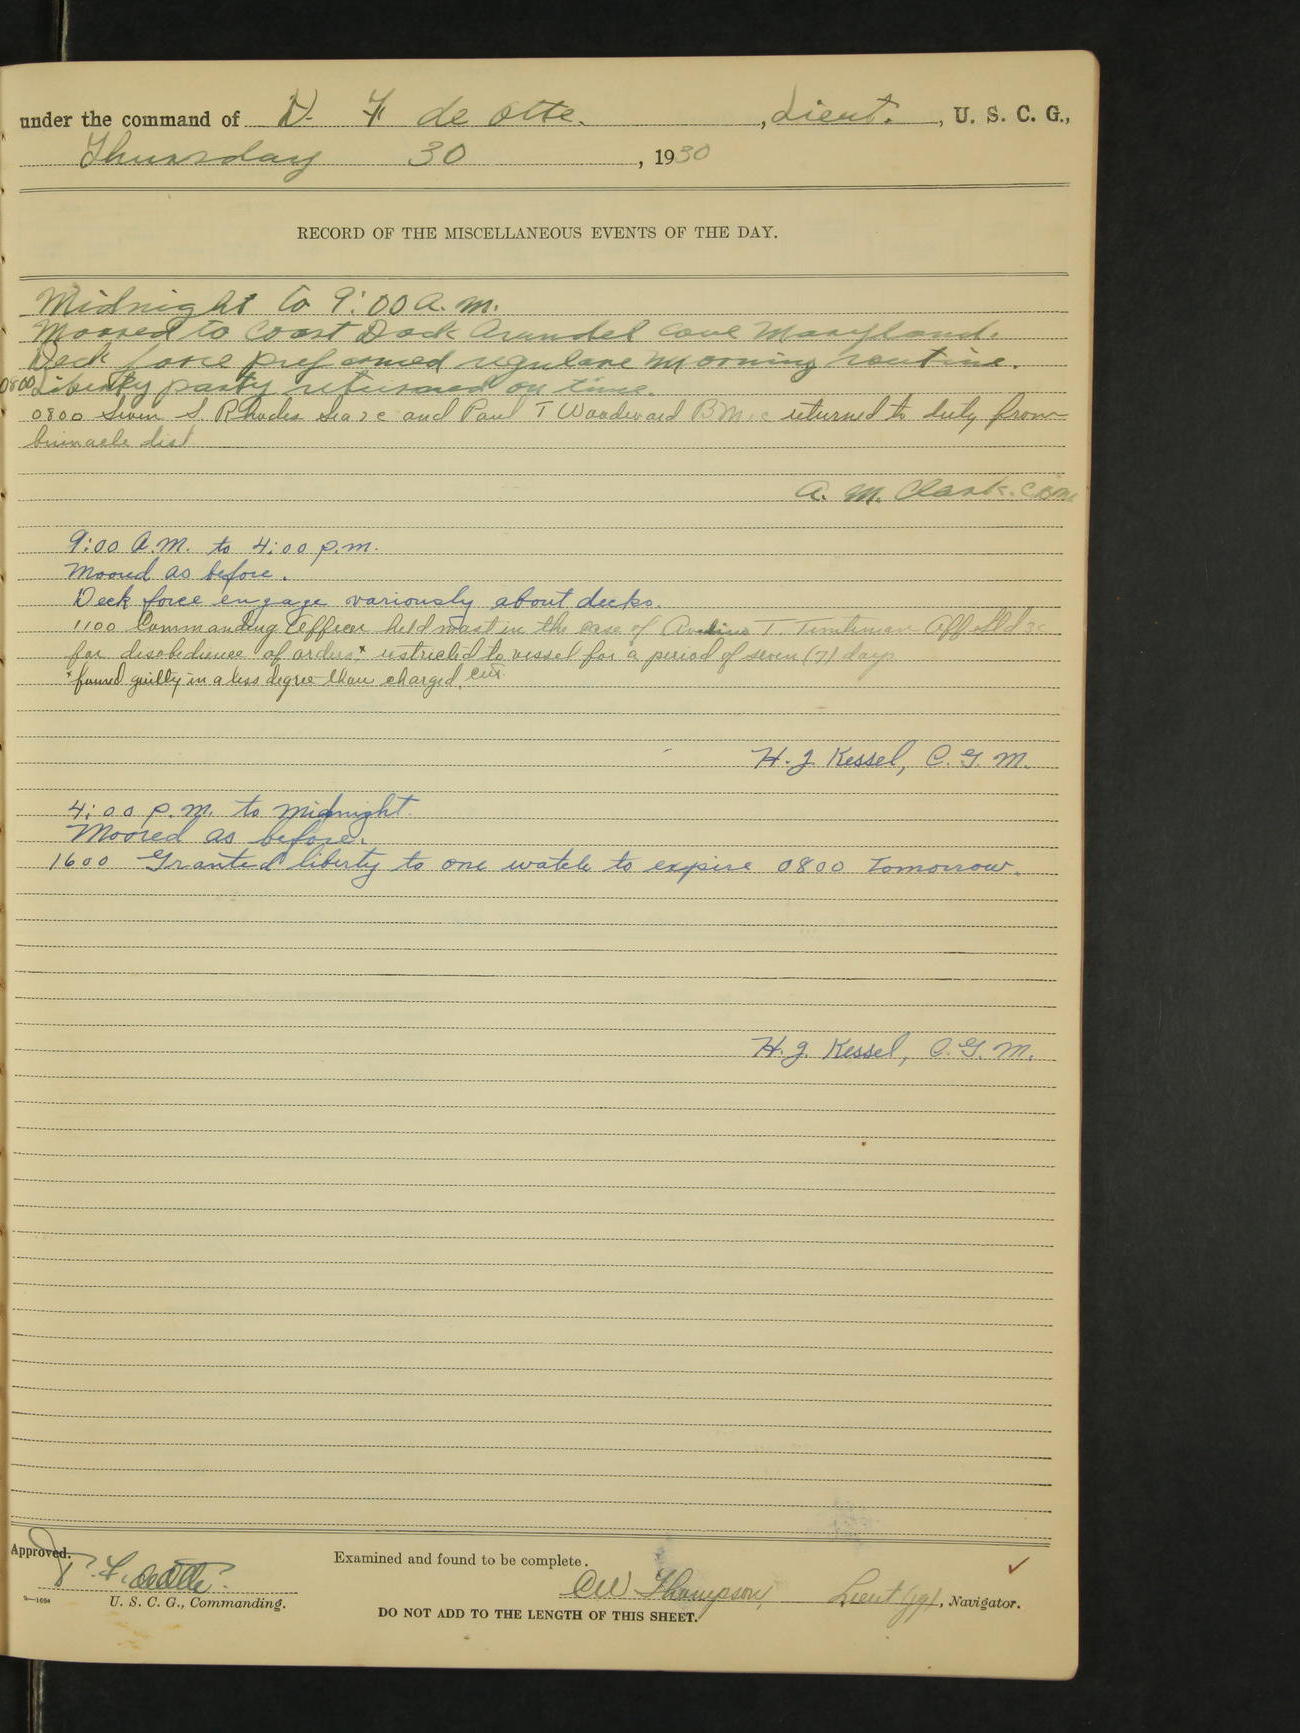 under the command of D. F. de Otte. , Lieut. , U. S. C. G.,
Thursday 30 , 1930
RECORD OF THE MISCELLANEOUS EVENTS OF THE DAY.
Midnight to 9:00 A.M.
Moored to Coast Dock Arundel Cove Maryland.
Deck force preformed regulare morning routine.
0800 Liberty party returned on time.
0800 S. Rhodes Sea 2c and Paul T Woodward returned to duty from
binnacle list
A. M. Clark. CBM
9:00 A.M. to 4:00 p.m.
Moored as before.
Deck force engage variously about decks.
1100 Commanding Officer held mast in the case of T. Off Std 3c
for disobedience of orders,* restricted to vessel for a period of seven (7) days
*found guilty in a less degree than charged.
H. J. Kessel, C. G. M.
4:00 P.M. to Midnight.
Moored as before.
1600 Granted liberty to one watch to expire 0800 tomorrow.
H. J. Kessel, C. G. M.
Approved.
D. F. de Otte.
U. S. C. G., Commanding.
Examined and found to be complete.
CW Thompson, Lieut (jg), Navigator.
DO NOT ADD TO THE LENGTH OF THIS SHEET.